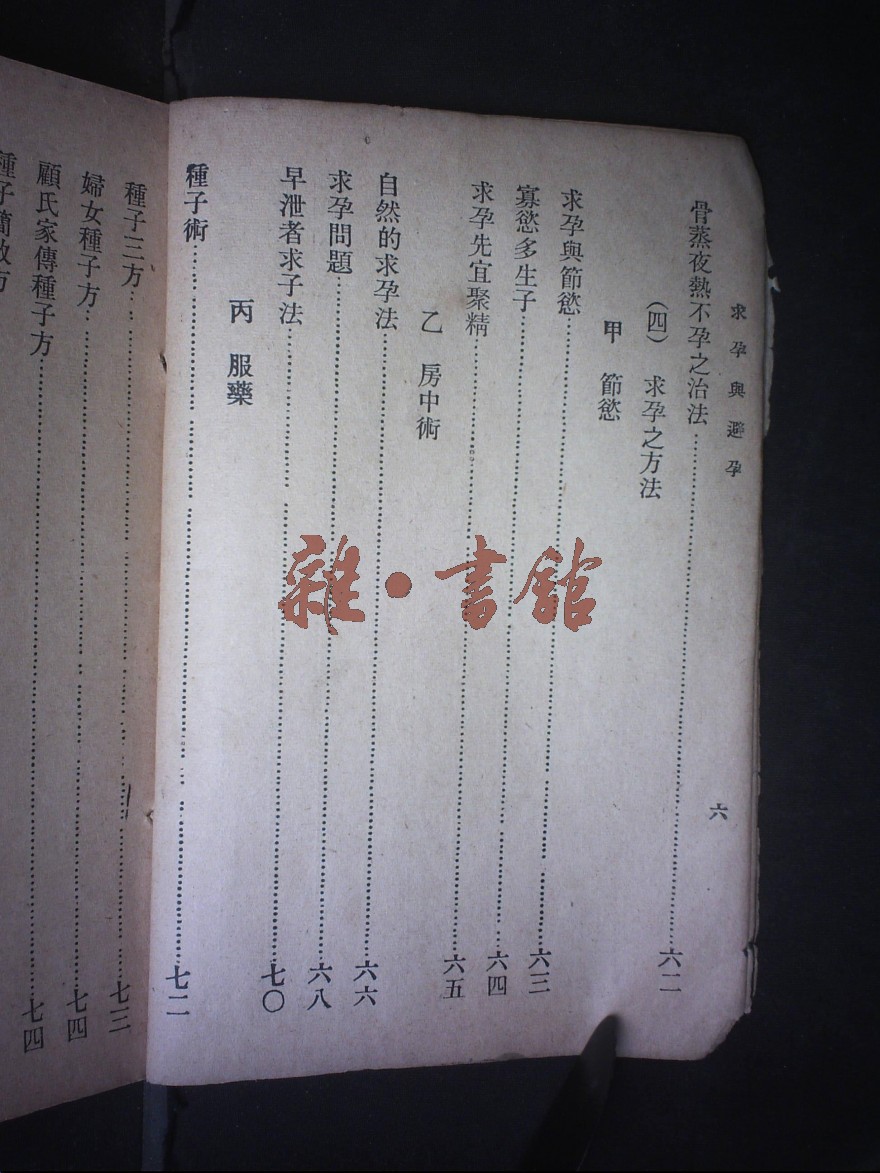 求孕與避孕
六
骨蒸夜熱不孕之治法……六二
(四) 求孕之方法
甲 節慾
求孕與節慾……六三
寡慾多生子……六四
求孕先宜聚精……六五
乙 房中術
自然的求孕法……六六
求孕問題……六八
早泄者求子法……七〇
丙 服藥
種子術……七二
種子三方……七三
婦女種子方……七四
顧氏家傳種子方……七四
種子簡效方
雜·書館